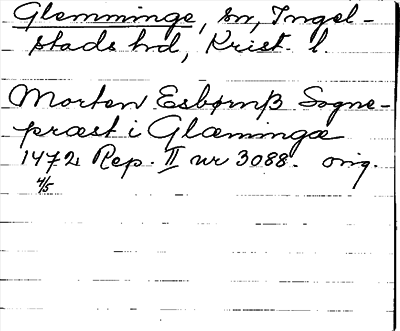 Glemminge, sn, Ingel-
stads hd, Krist. l.
Morten Esbørnß Sogne-
præst i Glæmingæ
1472 Rep. II nr 3088. orig.
4/5